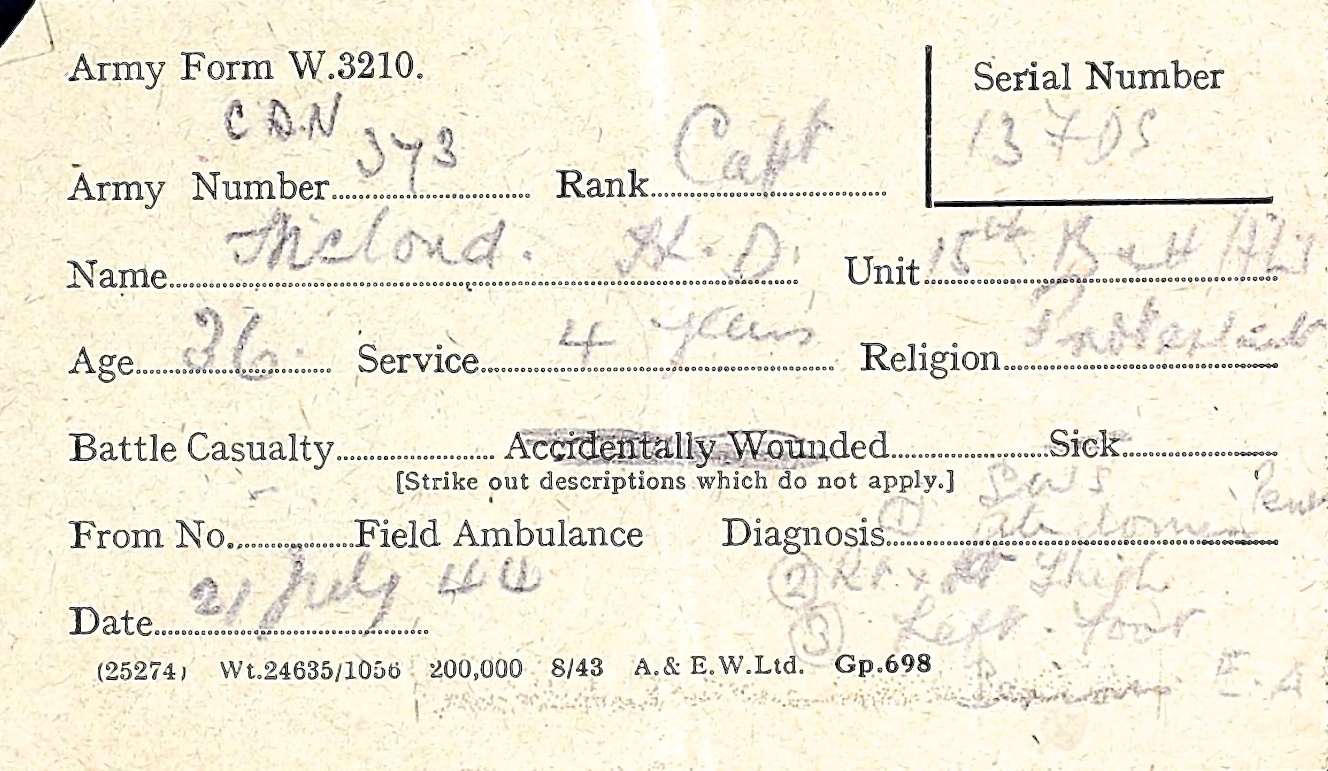 Army Form W.3210.
Serial Number
CDN
Army Number 373 Rank Capt
Name McCloud. H. D. Unit 15th
Age 26. Service 4 years Religion
Battle Casualty Accidentally Wounded Sick
[Strike out descriptions which do not apply.]
From No. Field Ambulance Diagnosis ①
② Rt. Thigh
Date 21 July 44 ③ Left foot
(25274) Wt.24635/1056 200,000 8/43 A.& E.W.Ltd. Gp.698
E.A